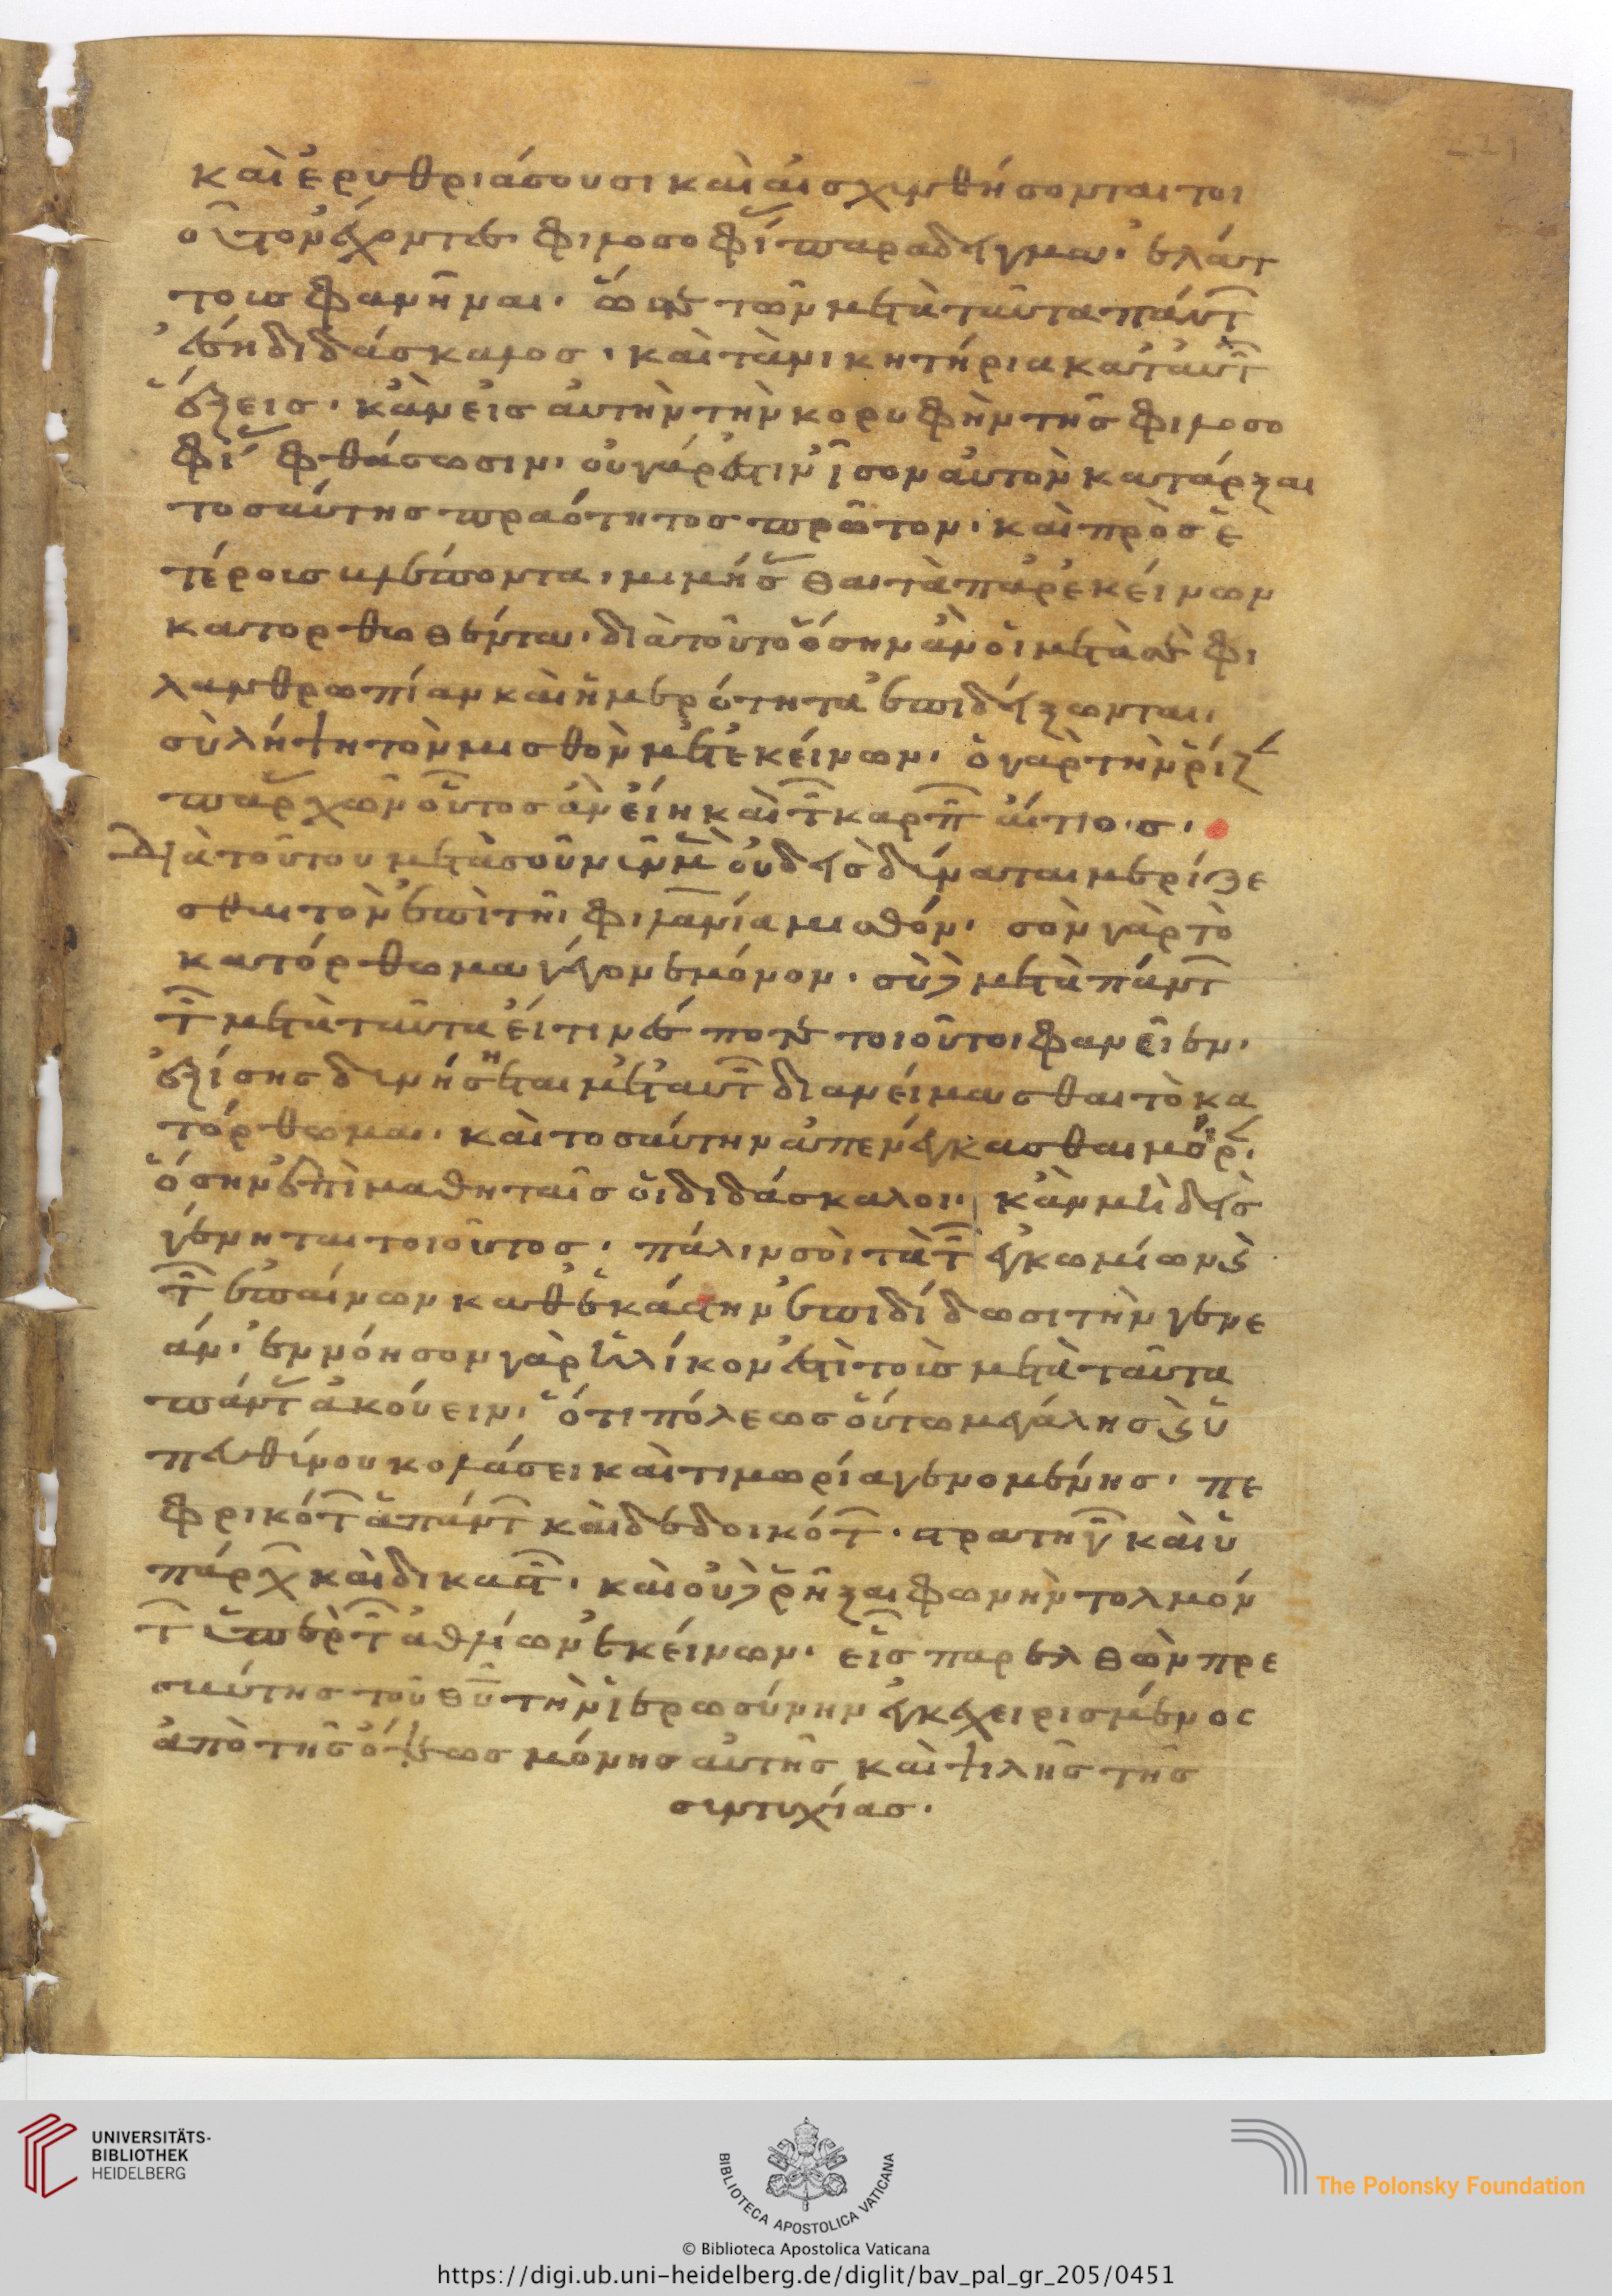 καὶ ἐρυθριάσουσι καὶ αἰσχυνθήσονται τοι
οῦτον ἔχοντες φιλοσοφί παράδειγμα· ἐλάτ
τους φανῆναι. ὥστε τῶν μετὰ ταῦτα πάντ
ἔση διδάσκαλος· καὶ τὰ νικητήρια κατ αὐτ
ἕξεις· κἂν εἰς αὐτὴν τὴν κορυφὴν τῆς φιλοσο
φί φθάσωσιν· οὐ γάρ ἐστιν ἶσον αὐτὸν κατάρξαι
τοσαύτης πραότητος πρῶτον· καὶ πρὸς ἑ
τέροις βλέποντα, μιμήσθαι τὰ παρ ἐκείνων
κατορθωθέντα· διὰ τοῦτο ὅσην ἂν οἱ μετὰ σὲ φι
λανθρωπίαν καὶ ἡμερότητα ἐπιδείξωνται,
σὺ λήψη τὸν μισθὸν μετ ἐκείνων· ὁ γὰρ τὴν ῥίζ
παρχὼν οὗτος ἂν εἴη καὶ τ καρπ αἴτιος·
Διὰ τοῦτο μετὰ σοῦ νῦν μὲν οὐδεὶς δύναται μερίζε
σθαι τὸν ἐπὶ τῆ φιλανία μισθόν· σὸν γὰρ τὸ
κατόρθωμα γέγονε μόνον· σὺ δὲ μετὰ πάντ
τ μετὰ ταῦτα εἴ τινές ποτε τοιοῦτοι φανεῖεν·
ἐξίσης δυνήσηται μετ αὐτ διανείμασθαι τὸ κα
τόρθωμα· καὶ τοσαύτην ἀπενέγκασθαι μοῖρ·
ὅσην ἐπὶ μαθηταῖς οἱ διδάσκαλοι· κἂν μηδεὶς
γένηται τοιοῦτος· πάλιν σοὶ τὰ τ ἐγκωμίων κ
τ ἐπαίνων καθ ἑκάστην ἐπιδίδωσι τὴν γενε
άν· ἐννόησον γὰρ ἡλίκον ἐστὶ τοῖς μετὰ ταῦτα
πάντ ἀκούειν· ὅτι πόλεως οὕτω μεγάλης κ ὑ
πευθύνου κολάσει καὶ τιμωρία γενομένης· πε
φρικότ ἁπάντ καὶ δεδοικότ· στρατηγ καὶ ὑ
πάρχ καὶ δικαστ· καὶ οὐδὲ ῥῆξαι φωνὴν τολμόν
τ ὑπὲρ τ ἀθλίων ἐκείνων· εἷς παρελθὼν πρε
σβύτης τοῦ θυ τὴν ἱερωσύνην ἐγκεχειρισμένος
ἀπὸ τῆς ὄψεως μόνης αὐτῆς καὶ ψιλῆς τῆς
συντυχίας·
UNIVERSITÄTS-
BIBLIOTHEK
HEIDELBERG
BIBLIOTECA APOSTOLICA VATICANA
The Polonsky Foundation
© Biblioteca Apostolica Vaticana
https://digi.ub.uni-heidelberg.de/diglit/bav_pal_gr_205/0451